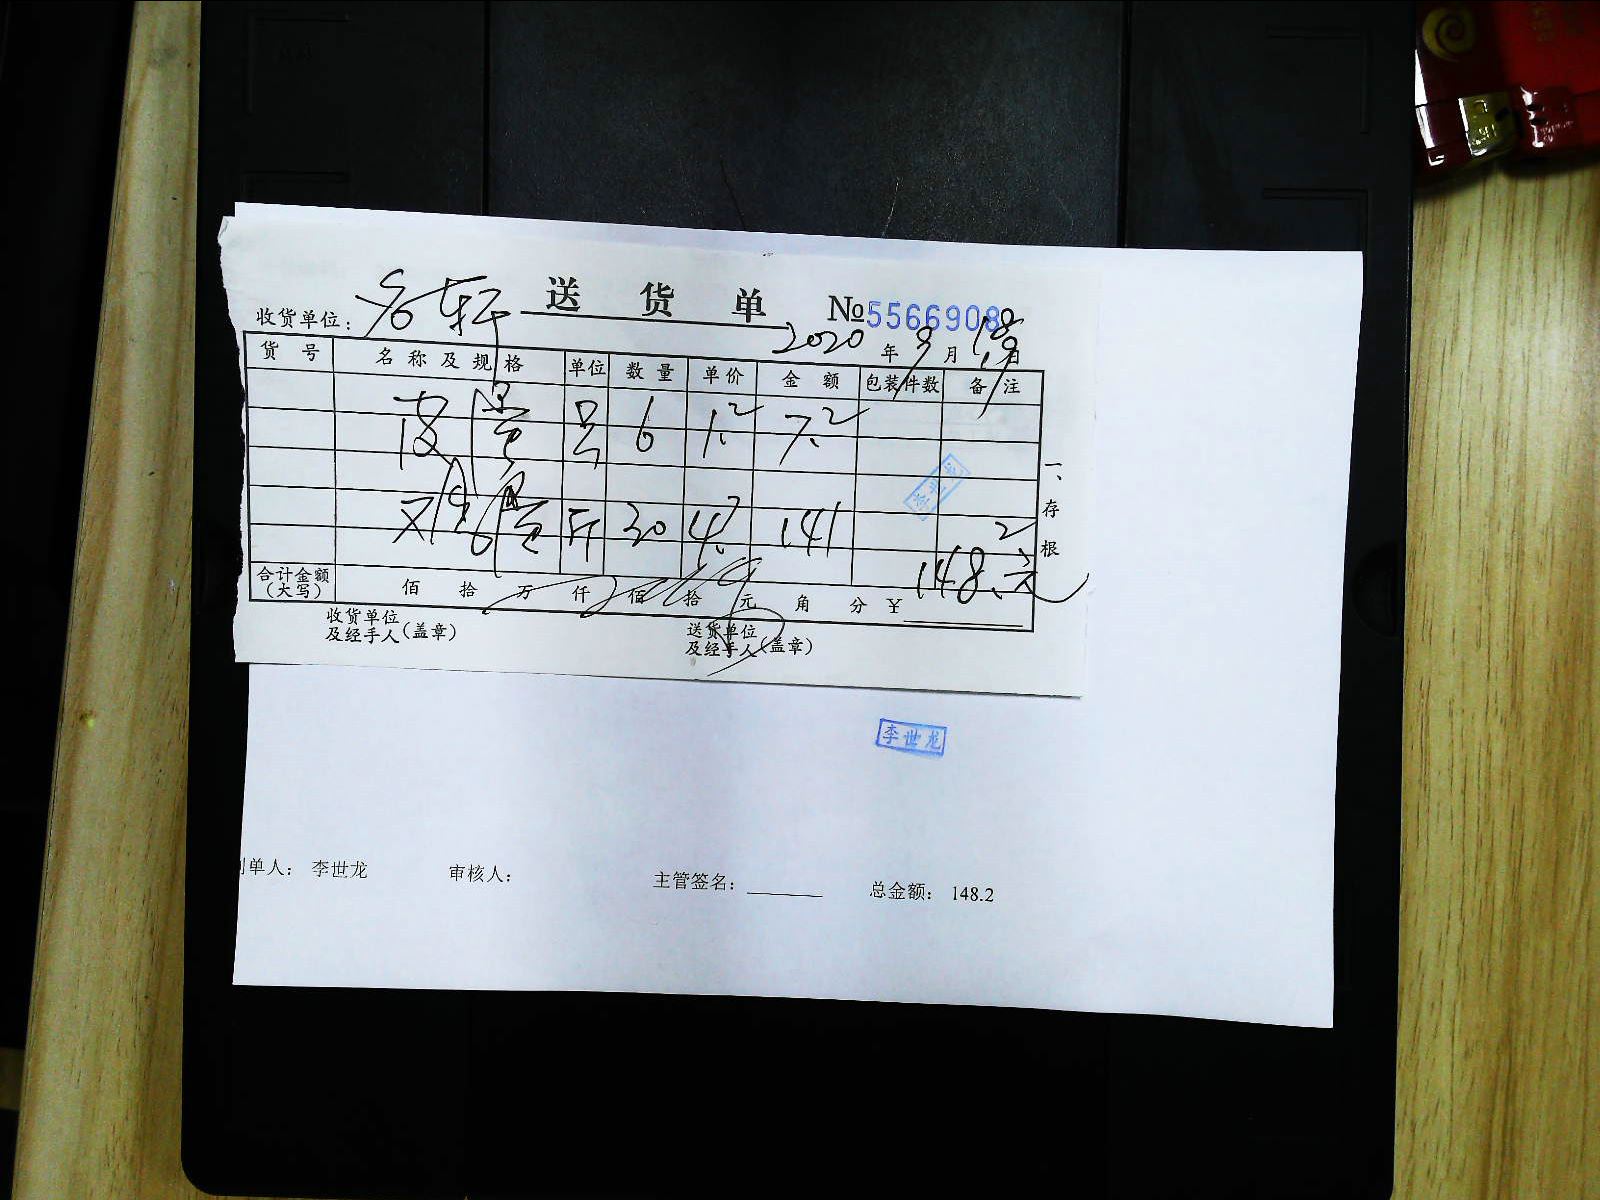 送货单 №5566908
收货单位: 名轩
2020 年 9 月 18 日
货号 名称及规格 单位 数量 单价 金额 包装件数 备注
皮蛋 只 6 1.2 7.2
鸡蛋 斤 30 4.7 141
合计金额(大写) 佰 拾 万 仟 佰 拾 元 角 分 ¥ 148.2元
收货单位及经手人(盖章) 送货单位及经手人(盖章)
一、存根
李世龙
李世龙
制单人: 李世龙 审核人: 主管签名: 总金额: 148.2